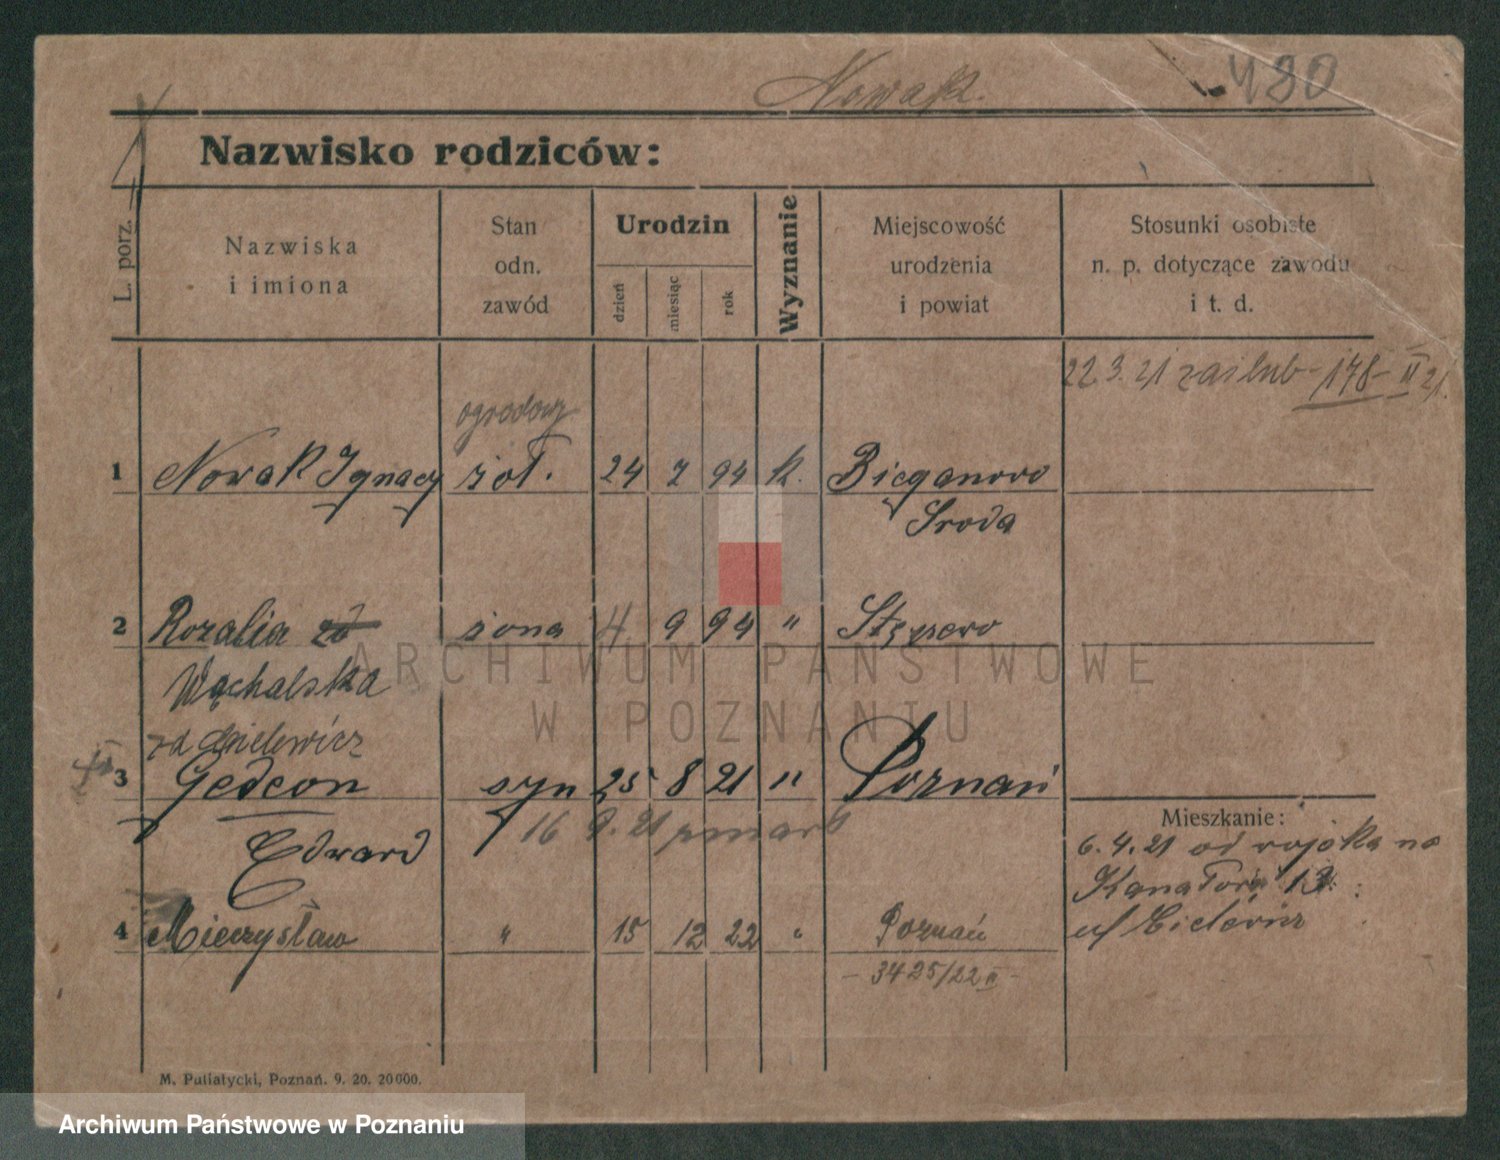 Nowak. 480
Nazwisko rodziców:
L. porz.
Nazwiska
i imiona
Stan
odn.
zawód
Urodzin
dzień
miesiąc
rok
Wyznanie
Miejscowość
urodzenia
i powiat
Stosunki osobiste
n. p. dotyczące zawodu
i t. d.
22 3. 21 zaślub - 178 - II 21.
1 Nowak Ignacy żoł. 24 7 94 k. Bieganowo
Środa
2 Rozalia żona 4 9 94 "
Wąchalska
3 Gedeon syn 25 8 21 " Poznań
16 9. 21 zmarł
Edward
4 Mieczysław " 15 12 22 " Poznań
- 3425/22 II -
Mieszkanie:
6. 4. 21 od wojska na
13
M. Putiatycki, Poznań. 9. 20. 20000.
ARCHIWUM PAŃSTWOWE
W POZNANIU
Archiwum Państwowe w Poznaniu